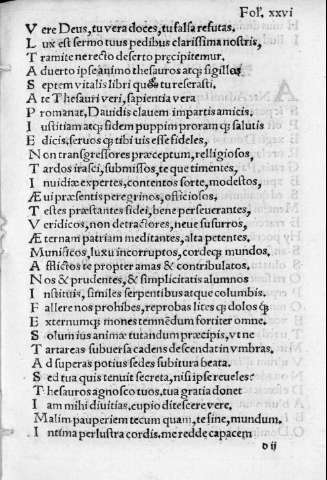 Fol. xxvi
V ere Deus, tu vera doces, tu falsa refutas.
L ux est sermo tuus pedibus clarissima nostris,
T ramite ne recto deserto pręcipitemur.
A duerto ipse animo thesauros atq; sigillos
S eptem vitalis libri quę tu reserasti.
A te Thesauri veri, sapientia vera
P romanat, Dauidis clauem impartis amicis.
I ustitiam atq; fidem puppim proram q; salutis
E dicis, seruos q; tibi uis esse fideles,
N on transgressores præceptum, relligiosos,
T ardos irasci, submissos, te que timentes,
I nuidiæ expertes, contentos sorte, modestos,
Æ ui præsentis peregrinos, officiosos,
T estes præstantes fidei, bene perseuerantes,
V eridicos, non detractores, neue susurros,
Æ ternam patriam meditantes, alta petentes.
M unificos, luxu incorruptos, cordeq; mundos.
A fflictos te propter amas & contribulatos.
N os & prudentes, & simplicitatis alumnos
I nstituis, similes serpentibus atque columbis.
F allere nos prohibes, reprobas lites q; dolos q;
E xternumq; mones temnēdum fortiter omne.
S olum ius animæ tutandum præcipis, vt ne
T artareas subuersa cadens descendat in vmbras.
A d superas potius sedes subitura beata.
S ed tua quis tenuit secreta, nisi ipse reueles?
T hesauros agnosco tuos, tua gratia donet
I am mihi diuitias, cupio ditescere vere.
M alim pauperiem tecum quam, te sine, mundum.
I ntima perlustra cordis. me redde capacem
D ij